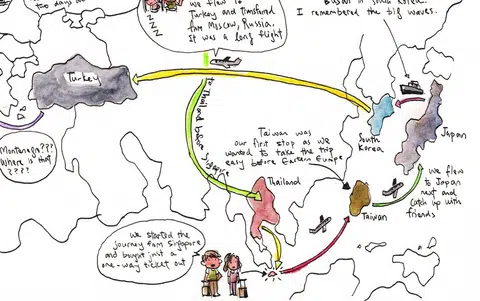 two days
we flew to
Turkey and Transfered
from Moscow, Russia.
It was a long flight
in South Korea.
I remembered the big waves.
zzz
Turkey
to Thailand before
Singapore
Montenegro???
Where is that
????
Taiwan was
our first stop as we
wanted to take the trip
easy before Eastern Europe
South
Korea
Japan
Thailand
Taiwan
we flew
to Japan
next and
catch up with
friends
we started the
journey from Singapore
and bought just a
one-way ticket out